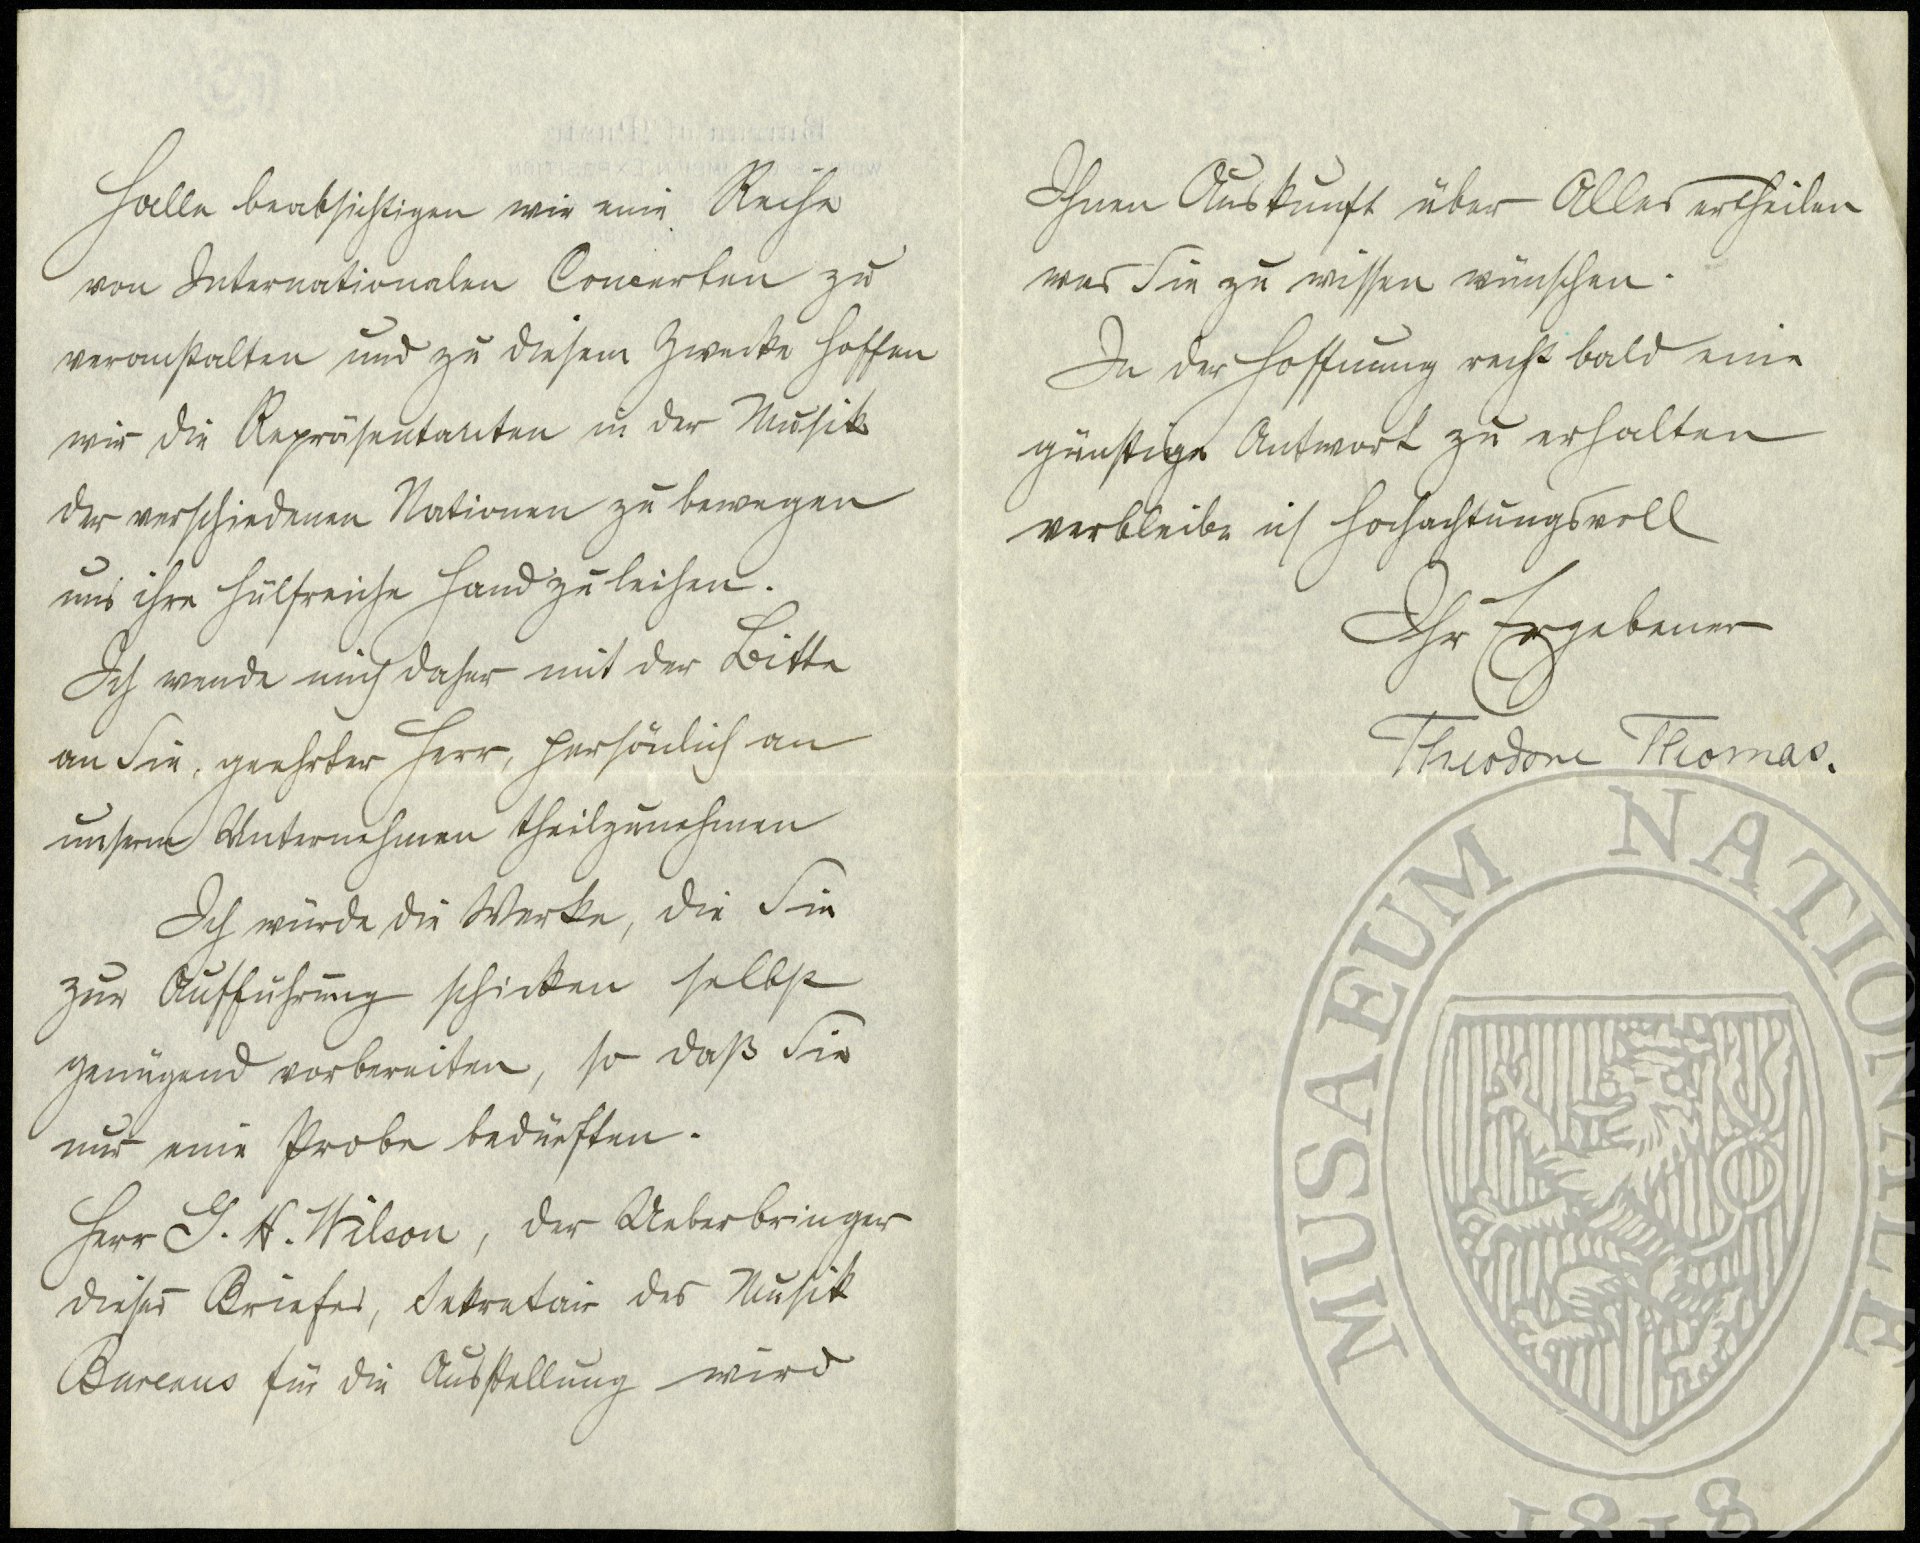 Halle beabsichtigen wir eine Reihe
von Internationalen Concerten zu
veranstalten und zu diesem Zwecke hoffen
wir die Repräsentanten in der Musik
der verschiedenen Nationen zu bewegen
uns ihre hülfreiche Hand zu leihen.
Ich wende mich daher mit der Bitte
an Sie, geehrter Herr, persönlich an
unserm Unternehmen theilzunehmen
Ich würde die Werke, die Sie
zur Aufführung schicken selbst
genügend vorbereiten, so daß Sie
nur eine Probe bedürften.
Herr G. H. Wilson, der Ueberbringer
dieses Briefes, Sekretair des Musik
Bureaus für die Ausstellung wird
Ihnen Auskunft über Alles ertheilen
was Sie zu wissen wünschen.
In der Hoffnung recht bald eine
günstige Antwort zu erhalten
verbleibe ich hochachtungsvoll
Ihr Ergebener
Theodore Thomas.
MUSAEUM NATIONALE
1818